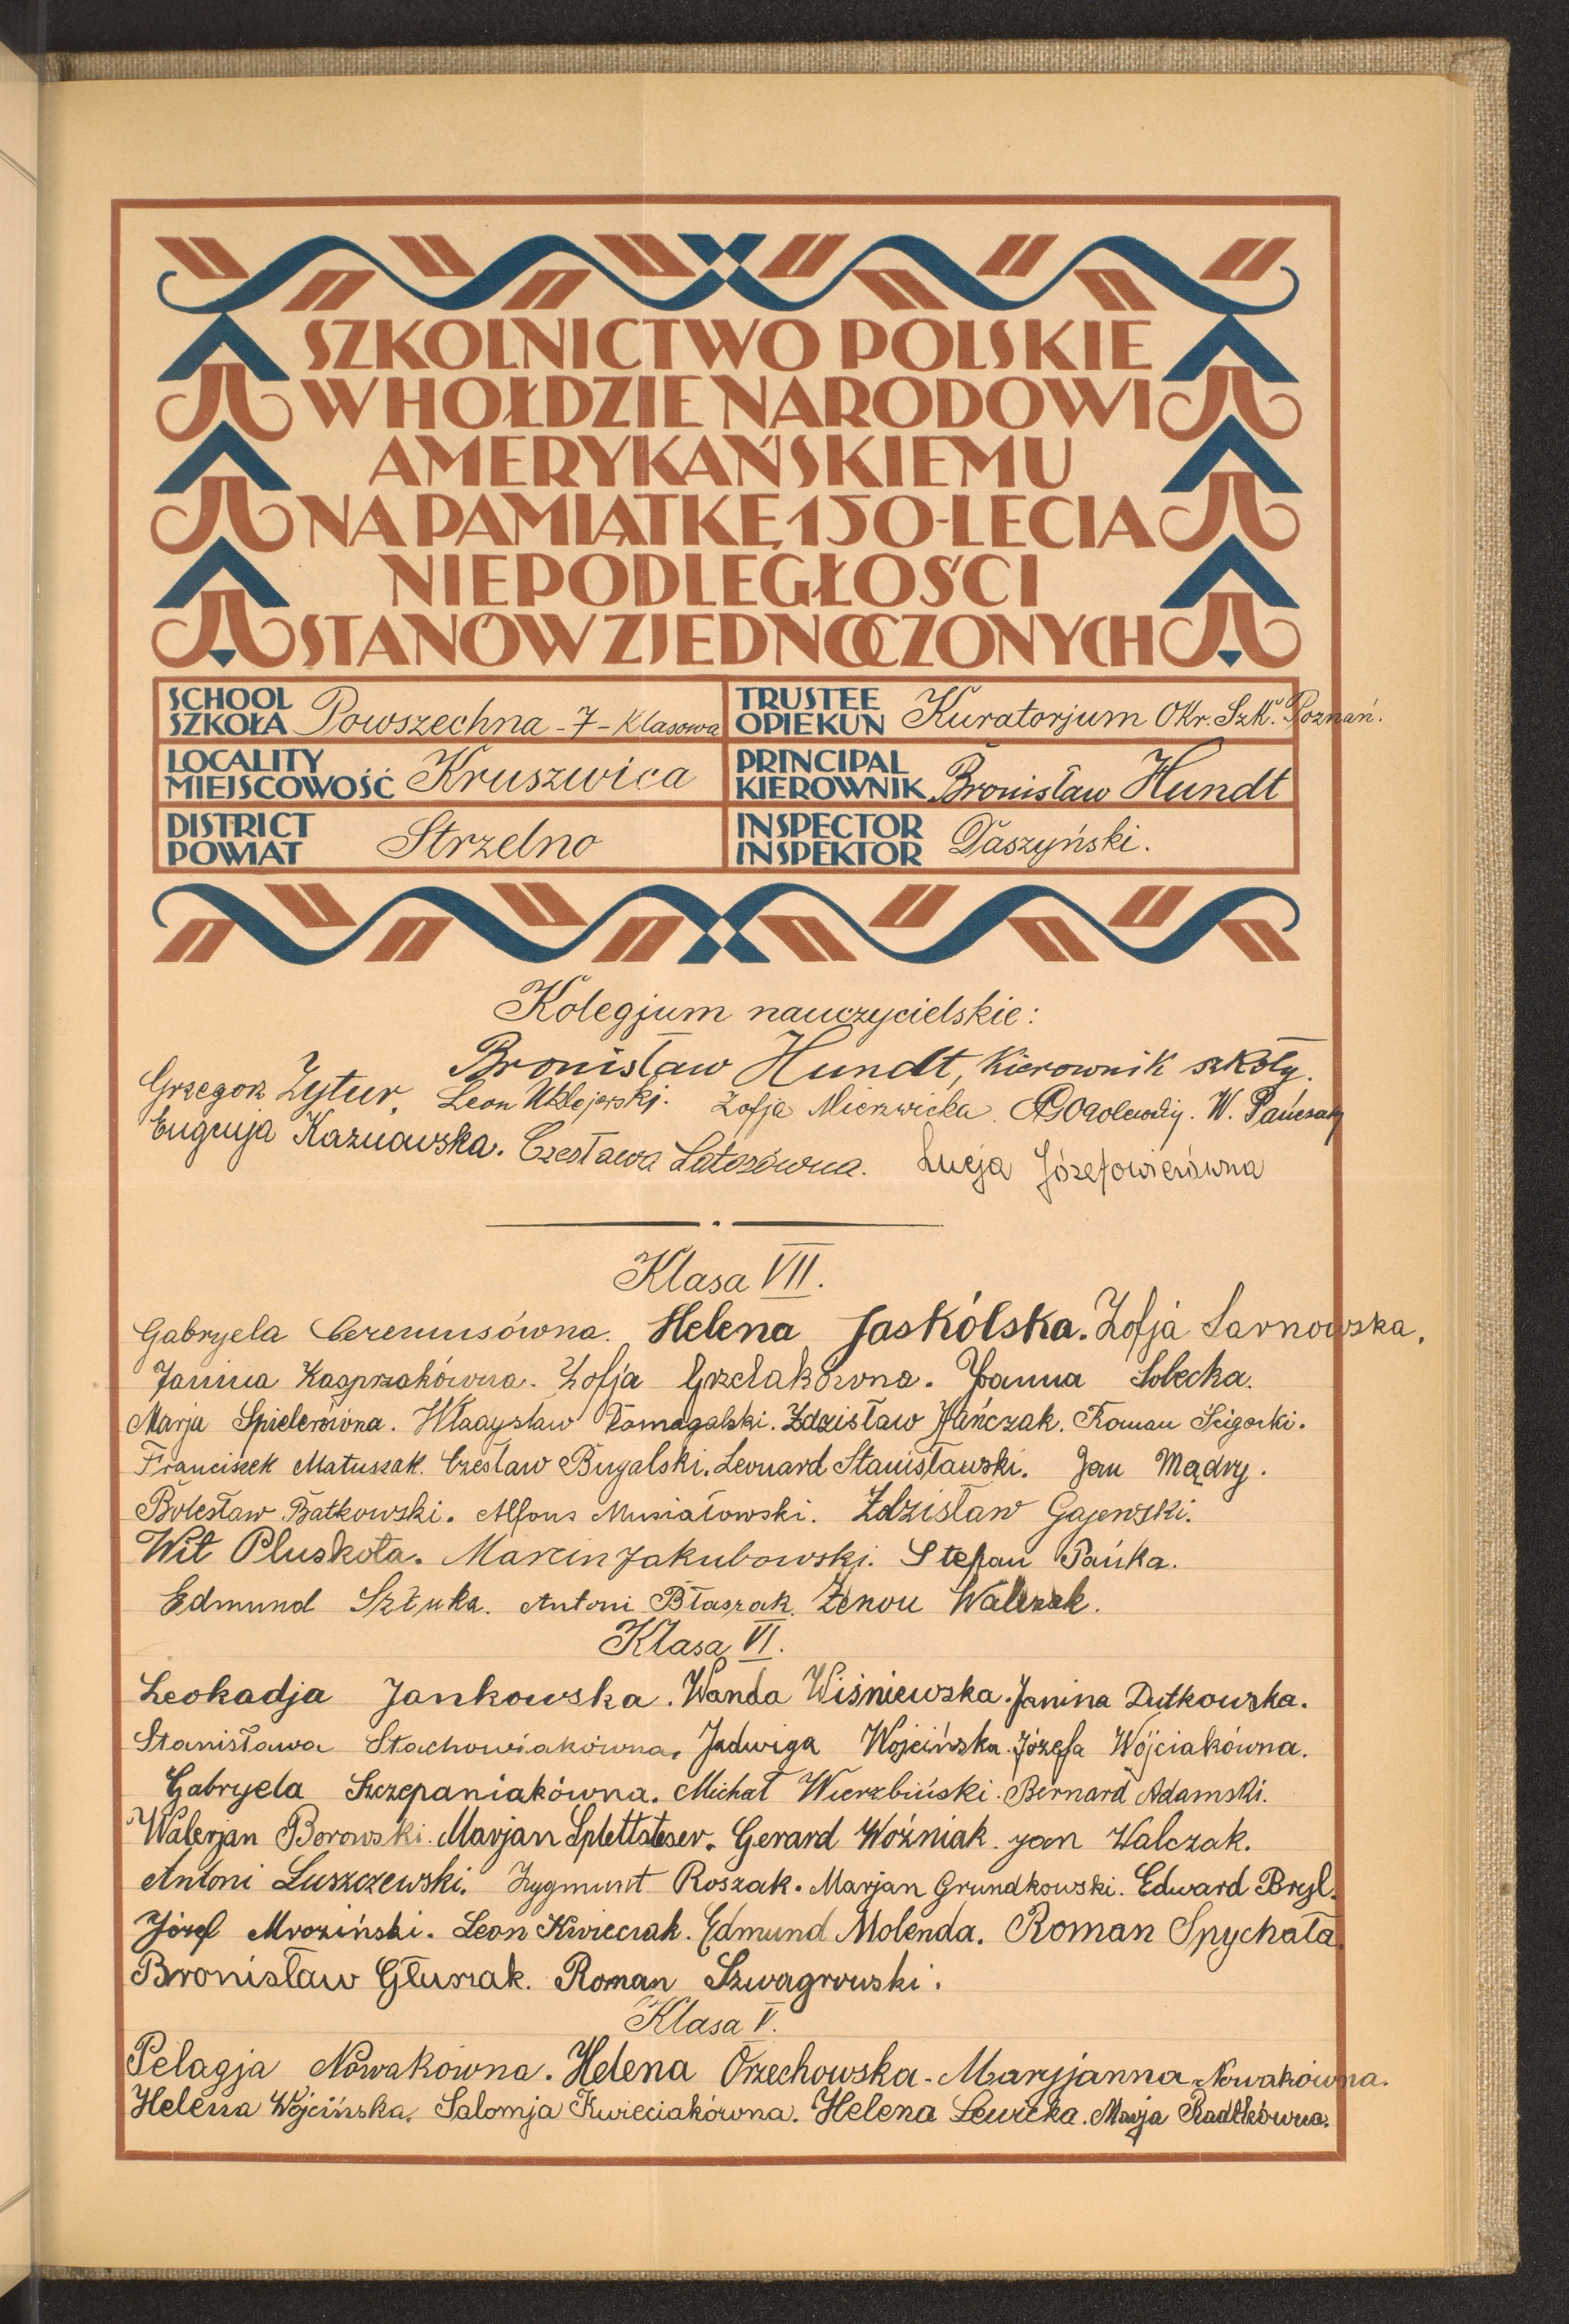 SZKOLNICTWO POLSKIE
W HOŁDZIE NARODOWI
AMERYKAŃSKIEMU
NA PAMIĄTKĘ 150-LECIA
NIEPODLEGŁOŚCI
STANÓW ZJEDNOCZONYCH
SCHOOL SZKOŁA Powszechna - 7 - klasowa
TRUSTEE OPIEKUN Kuratorjum Okr. Szk. Poznań.
LOCALITY MIEJSCOWOŚĆ Kruszwica
PRINCIPAL KIEROWNIK Bronisław Hundt
DISTRICT POWIAT Strzelno
INSPECTOR INSPEKTOR Daszyński.
Kolegjum nauczycielskie:
Bronisław Hundt, kierownik szkoły.
Grzegorz Zytur, Leon Zofja Mierzwicka. W.
Eugenja Kaznowska. Czesława Latosówna. Łucja Józefowiczówna
Klasa VII.
Gabryela Helena Jaskólska. Zofja Sarnowska.
Janina Kasprzakówna. Zofja Grzelakówna. Joanna Sobecka.
Marja Spielerówna. Władysław Domagalski. Zdzisław Hańczak. Roman Ścigocki.
Franciszek Matuszak. Czesław Bugalski. Leonard Stanisławski. Jan Mądry.
Bolesław Batkowski. Alfons Musiałowski. Zdzisław Gajewski.
Wit Pluskota. Marcin Jakubowski. Stefan Pańka.
Edmund Sztuka. Antoni Błaszak. Zenon Walczak.
Klasa VI.
Leokadja Jankowska. Wanda Wiśniewska. Janina Dutkowska.
Stanisława Stachowiakówna. Jadwiga Wojcińska. Józefa Wójciakówna.
Gabryela Szczepaniakówna. Michał Wierzbiński. Bernard Adamski.
Walerjan Borowski. Marjan Splettsteser. Gerard Woźniak. Jan Walczak.
Antoni Luszczewski. Zygmunt Roszak. Marjan Grundkowski. Edward Bryl.
Józef Mroziński. Leon Kwieciak. Edmund Molenda. Roman Spychała.
Bronisław Głuszak. Roman Szwagrowski.
Klasa V.
Pelagja Nowakówna. Helena Orzechowska. Maryjanna Nowakówna.
Helena Wójcińska. Salomja Kwieciakówna. Helena Lewicka. Marja Radtkówna.